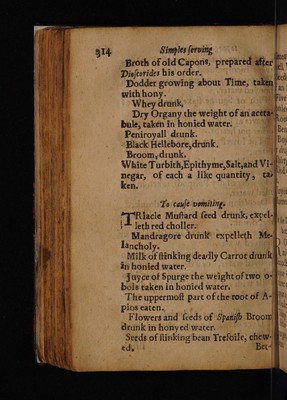 314 Simples serving
Broth of old Capons, prepared after
Dioscorides his order.
Dodder growing about Time, taken
with hony.
Whey drunk.
Dry Organy the weight of an aceta-
bule, taken in honied water.
Peniroyall drunk.
Black Hellebore, drunk.
Broom, drunk.
White Turbith, Epithyme, Salt, and Vi-
negar, of each a like quantity, ta-
ken.
To cause vomiting.
TRiacle Mustard seed drunk, expel-
leth red choller.
Mandragore drunk expelleth Me-
lancholy.
Milk of stinking deadly Carrot drunk
in honied water.
Juyce of Spurge the weight of two o-
bols taken in honied water.
The uppermost part of the root of A-
pios eaten.
Flowers and seeds of Spanish Broom
drunk in honyed water.
Seeds of stinking bean Trefoile, chew-
ed.